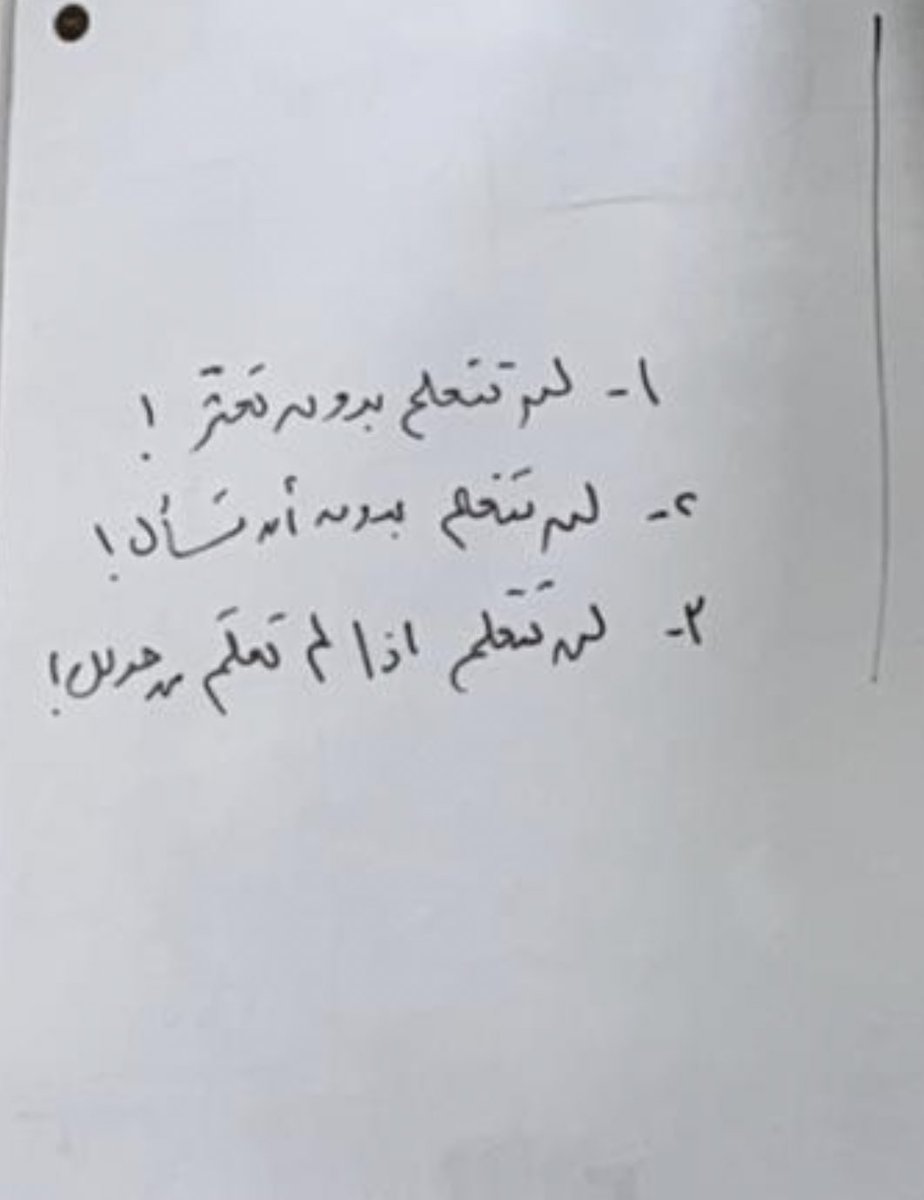 ١- لن تتعلم بدون تعثر !
٢- لن تتعلم بدون أن تسأل !
٣- لن تتعلم اذا لم تعلّم من حولك !